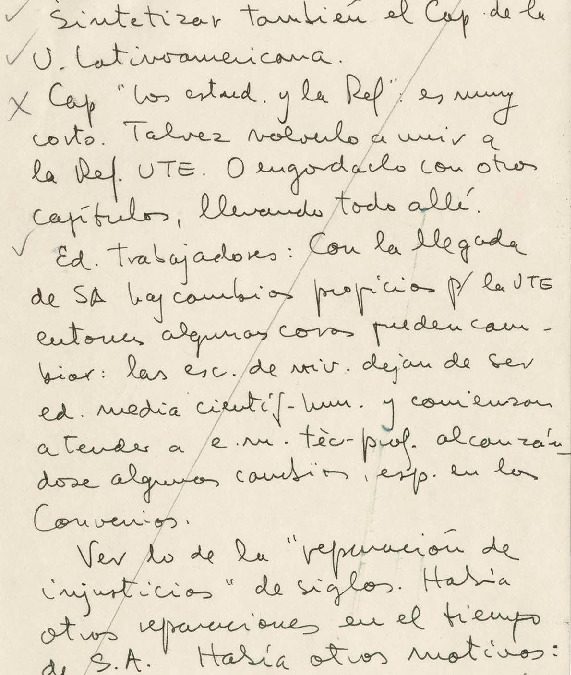 Sintetizar también el Cap. de la
U. Latinoamericana.
Cap "Los estud. y la Ref": es muy
corto. Talvez volverlo a unir a
la Ref. UTE. O engordarlo con otros
capítulos, llevando todo allé.
Ed. Trabajadores: Con la llegada
de SA hay cambios propicios p/ la UTE
entonces algunas cosas pueden cam-
biar: las esc. de niv. dejan de ser
ed. media científ-hum. y comienzan
a tender a e.m. téc-prof. alcanzán-
dose algunos cambios, esp. en los
Convenios.
Ver lo de la "reparación de
injusticias" de siglos. Había
otras reparaciones en el tiempo
de S.A. Había otros motivos: